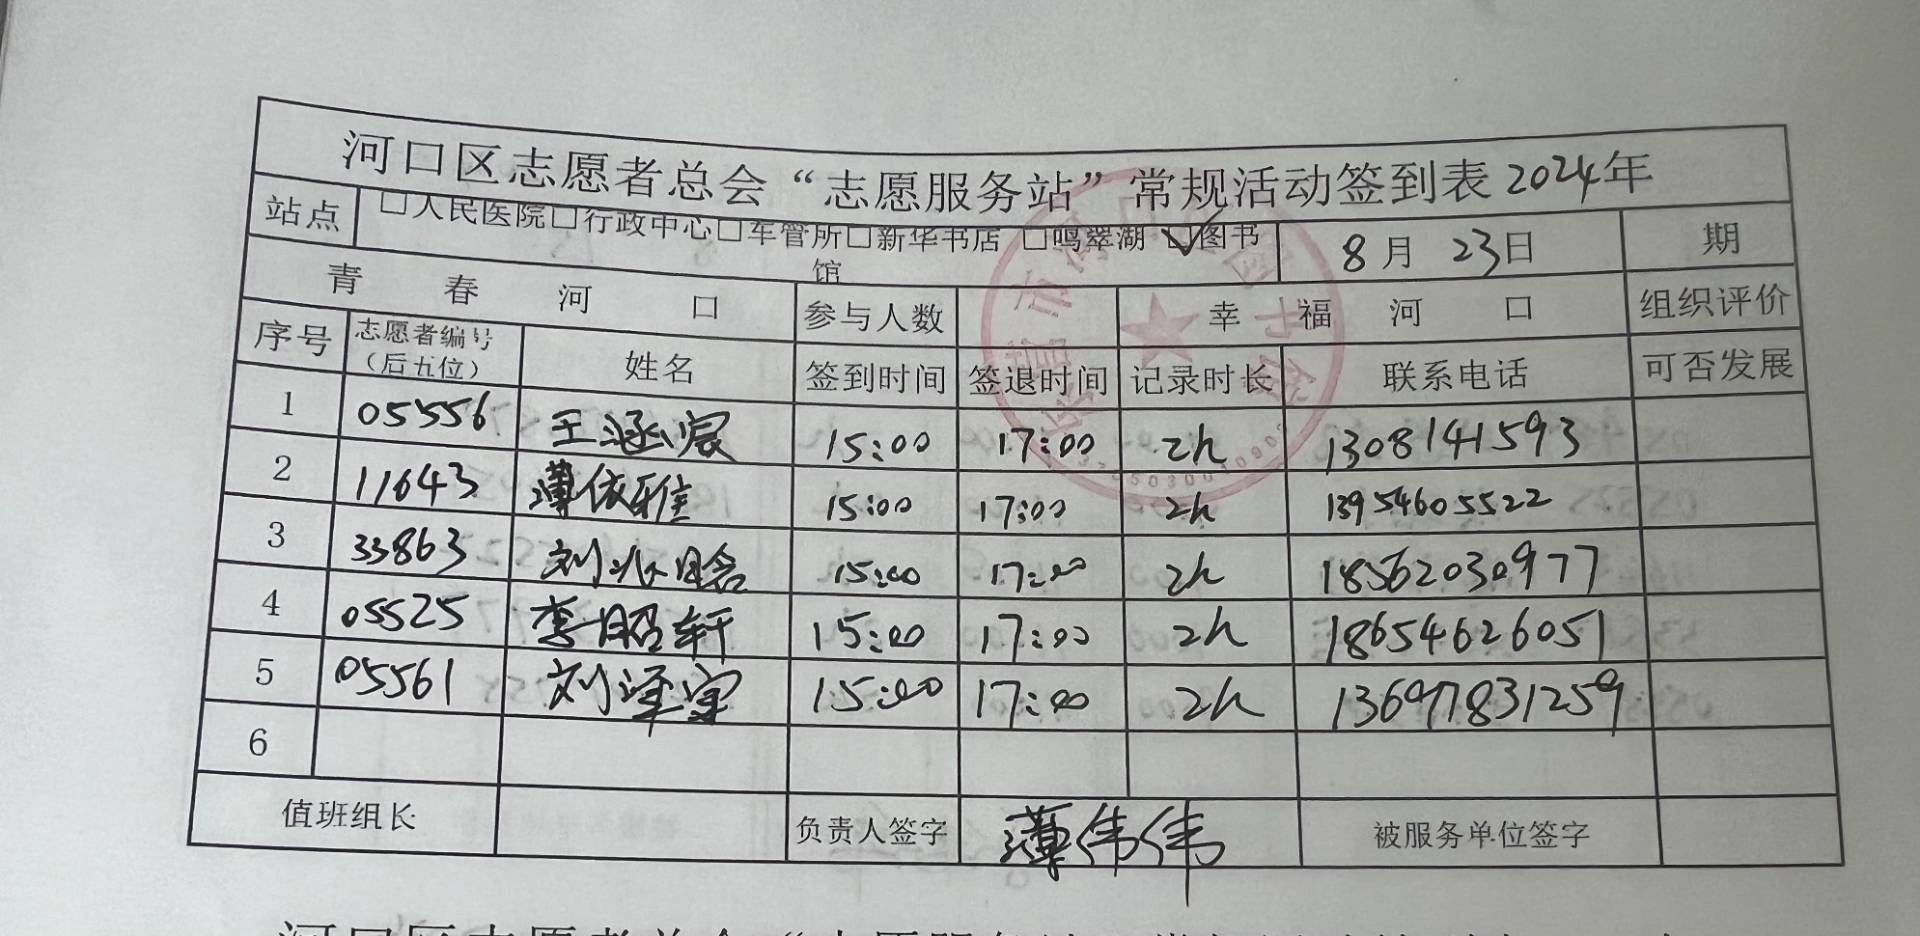 河口区志愿者总会“志愿服务站”常规活动签到表2024年
站点 □人民医院□行政中心□车管所□新华书店 □鸣翠湖 ☑图书馆 8月 23日 期
青春河口 参与人数 幸福河口 组织评价
序号 志愿者编号（后五位） 姓名 签到时间 签退时间 记录时长 联系电话 可否发展
1 05556 王涵宸 15:00 17:00 2h 1308141593
2 11643 薄依雅 15:00 17:00 2h 13954605522
3 33863 刘 晗 15:00 17:00 2h 18562030977
4 05525 李昭轩 15:00 17:00 2h 18654626051
5 05561 刘泽宇 15:00 17:00 2h 13697831259
6
值班组长 负责人签字 薄伟伟 被服务单位签字
河口区志愿者总会“志愿服务站”常规活动签到表